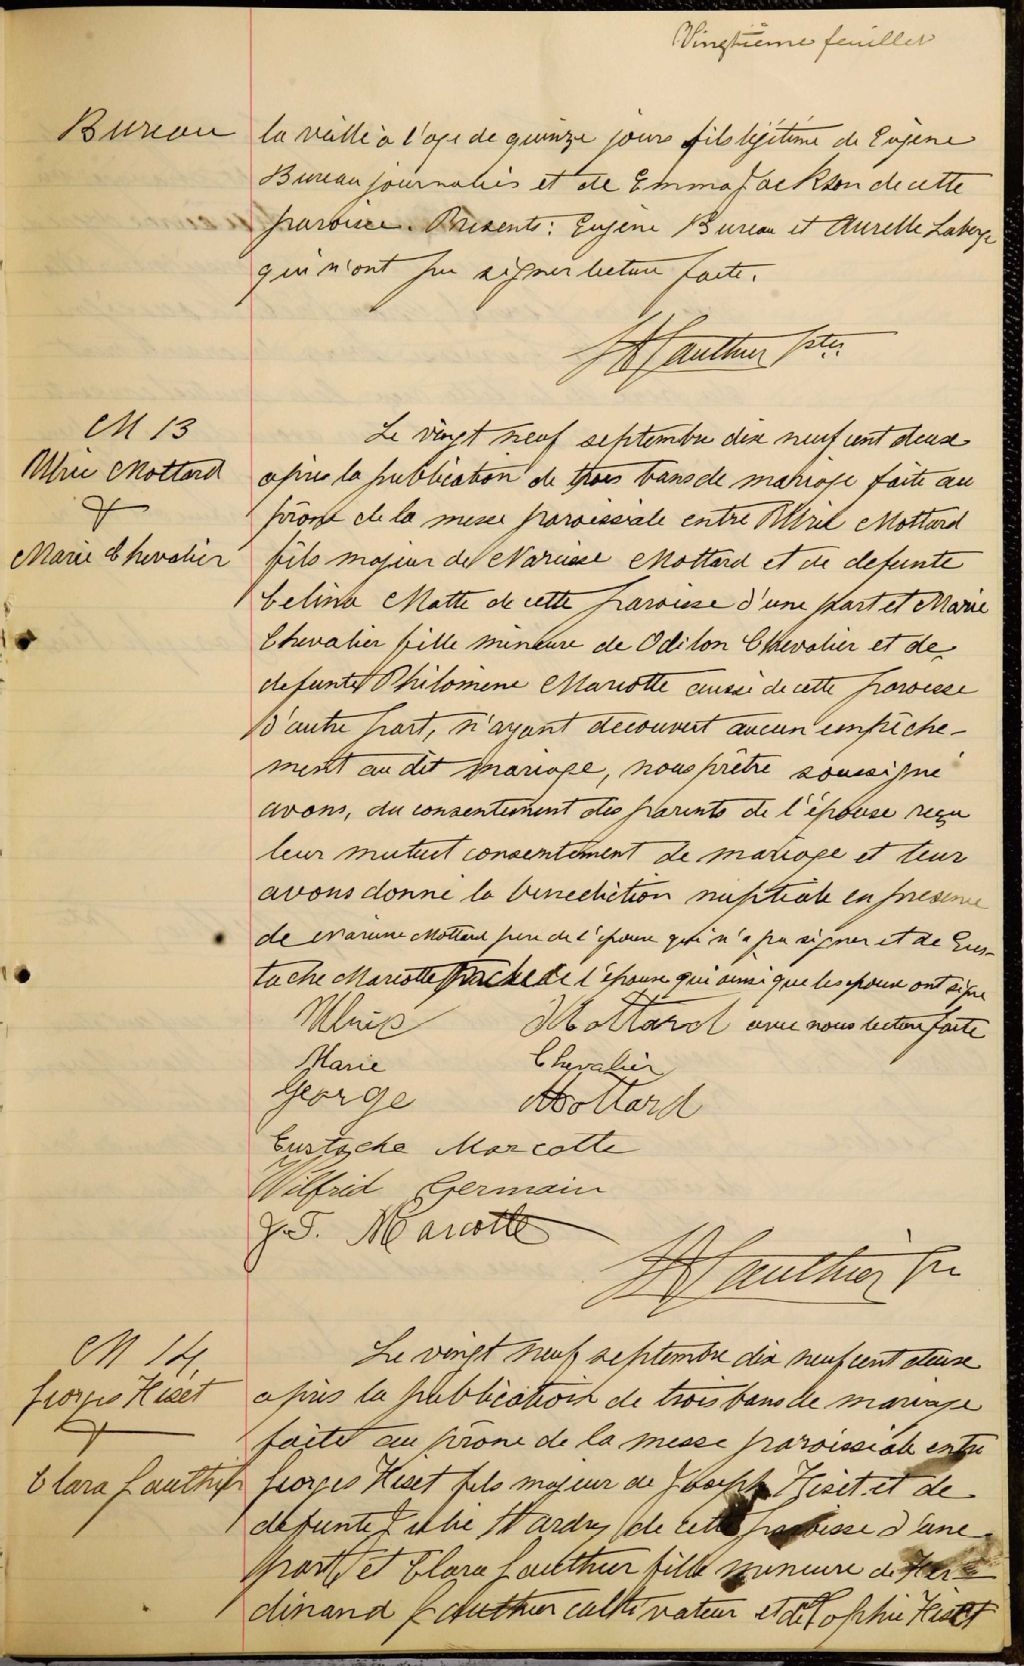 Vingtième feuillet
Bureau
la veille à l'age de quinze jours fils légitime de Eugène
Bureau journalier et de Emma Jackson de cette
paroisse. Présents: Eugène Bureau et Aurelle Laberge
qui n'ont pu signer lecture faite.
Gauthier ptre
M 13
Ulric Mottard
&
Marie Chevalier
Le vingt neuf septembre dix neuf cent deux
après la publication de trois bans de mariage faite au
prône de la messe paroissiale entre Ulric Mottard
fils majeur de Narcisse Mottard et de defunte
Celina Matte de cette paroisse d'une part et Marie
Chevalier fille mineure de Odilon Chevalier et de
defunte Philomène Marcotte aussi de cette paroisse
d'autre part, n'ayant decouvert aucun empêche-
ment au dit mariage, nous prêtre soussigné
avons, du consentement des parents de l'épouse reçu
leur mutuel consentement de mariage et leur
avons donné la benediction nuptiale en presence
de Narcisse Mottard père de l'époux qui n'a pu signer et de Eus-
tache Marcotte de l'épouse qui ainsi que les epoux ont signé
avec nous lecture faite
Ulric Mottard
Marie Chevalier
George Mottard
Eustache Marcotte
Wilfrid Germain
J.T. Marcotte
Gauthier Ptre
M 14
Georges Hiset
&
Clara Gauthier
Le vingt neuf septembre dix neuf cent deux
après la publication de trois bans de mariage
faite au prône de la messe paroissiale entre
Georges Hiset fils majeur de Joseph Hiset et de
defunte Julie Hardy de cette paroisse d'une
part, et Clara Gauthier fille mineure de Fer=
dinand Gauthier cultivateur et de Sophie Hiset